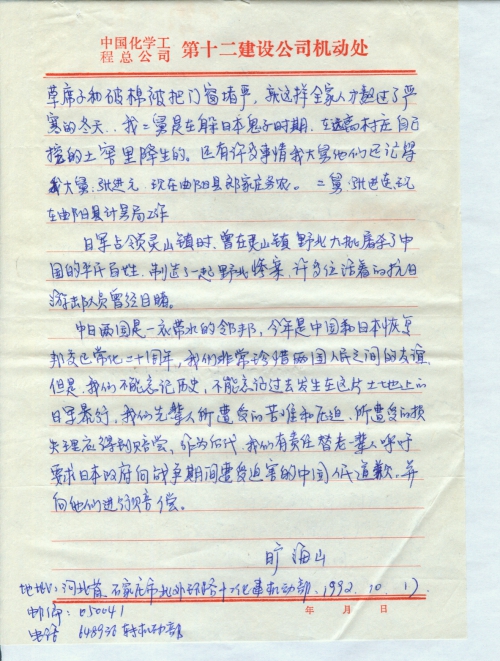 中国化学工
程总公司 第十二建设公司机动处
草席子和破棉被把门窗堵严,就这样全家人才熬过了严
寒的冬天。我二舅是在躲日本鬼子时期,在逃高村庄自己
挖的土窖里降生的。还有许多事情我大舅他们还记得
我大舅:张进元,现在曲阳县郎家庄务农。二舅:张进莲,现
在曲阳县计量局工作
日军占领灵山镇时,曾在灵山镇野北大批屠杀了中
国的平民百姓,制造了一起野北惨案,许多位活着的抗日
游击队员曾经目睹。
中日两国是一衣带水的邻邦,今年是中国和日本恢复
邦交正常化二十周年,我们非常珍惜两国人民之间的友谊
但是,我们不能忘记历史,不能忘记过去发生在这片土地上的
日军暴行,我们先辈人所遭受的苦难和压迫,所遭受的损
失理应得到赔偿,作为后代,我们有责任替老一辈人呼吁
要求日本政府向战争期间遭受迫害的中国人民道歉,并
向他们进行赔偿。
旷海山
地址:河北省石家庄市北外环路十二化建机动部,1992.10.17.
年 月 日
邮编:050041
电话 648936转机动部